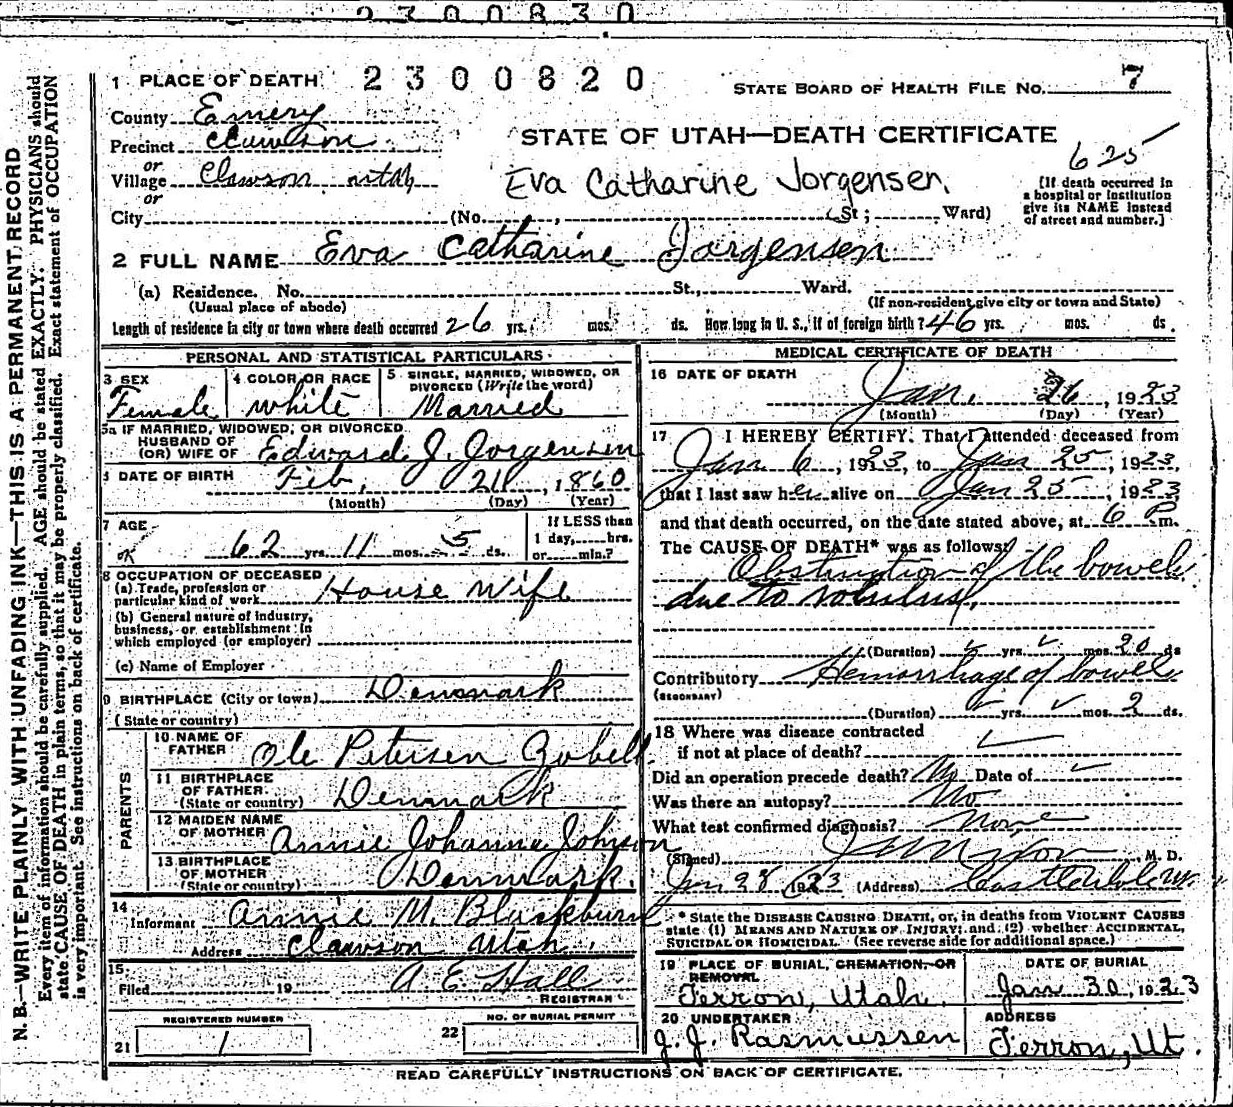 2300830
1 PLACE OF DEATH 2300820 STATE BOARD OF HEALTH FILE NO. 7
County Emery
Precinct Clawson STATE OF UTAH—DEATH CERTIFICATE
or 625
Village Clawson, utah Eva Catharine Jorgensen.
or
City (No. , St; Ward)
(If death occurred in
a hospital or institution
give its NAME instead
of street and number.)
2 FULL NAME Eva Catharine Jorgensen
(a) Residence. No. St., Ward.
(Usual place of abode) (If non-resident give city or town and State)
Length of residence in city or town where death occurred 26 yrs. mos. ds. How long in U. S., if of foreign birth? 46 yrs. mos. ds.
PERSONAL AND STATISTICAL PARTICULARS
3 SEX 4 COLOR OR RACE 5 SINGLE, MARRIED, WIDOWED, OR
DIVORCED (Write the word)
Female white Married
5a IF MARRIED, WIDOWED, OR DIVORCED
HUSBAND OF
(OR) WIFE OF Edward J. Jorgensen
6 DATE OF BIRTH Feb, 21, 1860
(Month) (Day) (Year)
7 AGE If LESS than
1 day, hrs.
OK 62 yrs. 11 mos. 5 ds. or min.?
8 OCCUPATION OF DECEASED
(a) Trade, profession or
particular kind of work House Wife
(b) General nature of industry,
business, or establishment in
which employed (or employer)
(c) Name of Employer
9 BIRTHPLACE (City or town) Denmark
(State or country)
PARENTS
10 NAME OF
FATHER Ole Petersen Zobell
11 BIRTHPLACE
OF FATHER
(State or country) Denmark
12 MAIDEN NAME
OF MOTHER Annie Johanna Johnson
13 BIRTHPLACE
OF MOTHER
(State or country) Denmark.
14
Informant Annie M. Blackburn
Address Clawson Utah.
15
Filed 19 A. E. Hall
REGISTRAR
REGISTERED NUMBER NO. OF BURIAL PERMIT
21 1 22
MEDICAL CERTIFICATE OF DEATH
16 DATE OF DEATH
Jan. 26, 1923
(Month) (Day) (Year)
17 I HEREBY CERTIFY, That I attended deceased from
Jan 6, 1923, to Jan 25, 1923,
that I last saw her alive on Jan 25, 1923
and that death occurred, on the date stated above, at 6 P m.
The CAUSE OF DEATH* was as follows:
Obstruction of the bowels
due to volulus.
(Duration) yrs. mos. 20 ds
Contributory Hemorrhage of bowel
(SECONDARY)
(Duration) yrs. mos. 2 ds.
18 Where was disease contracted
if not at place of death?
Did an operation precede death? No Date of
Was there an autopsy? No
What test confirmed diagnosis? None
(Signed) Nixon, M. D.
Jan 28, 1923 (Address) Castledale
* State the DISEASE CAUSING DEATH, or, in deaths from VIOLENT CAUSES
state (1) MEANS AND NATURE OF INJURY; and (2) whether ACCIDENTAL,
SUICIDAL OR HOMICIDAL. (See reverse side for additional space.)
19 PLACE OF BURIAL, CREMATION, OR
REMOVAL DATE OF BURIAL
Ferron, Utah. Jan 30, 1923
20 UNDERTAKER ADDRESS
J. J. Rasmussen Ferron, Ut.
READ CAREFULLY INSTRUCTIONS ON BACK OF CERTIFICATE.
N. B.—WRITE PLAINLY WITH UNFADING INK—THIS IS A PERMANENT RECORD
Every item of information should be carefully supplied. AGE should be stated EXACTLY. PHYSICIANS should
state CAUSE OF DEATH in plain terms, so that it may be properly classified. Exact statement of OCCUPATION
is very important. See instructions on back of certificate.